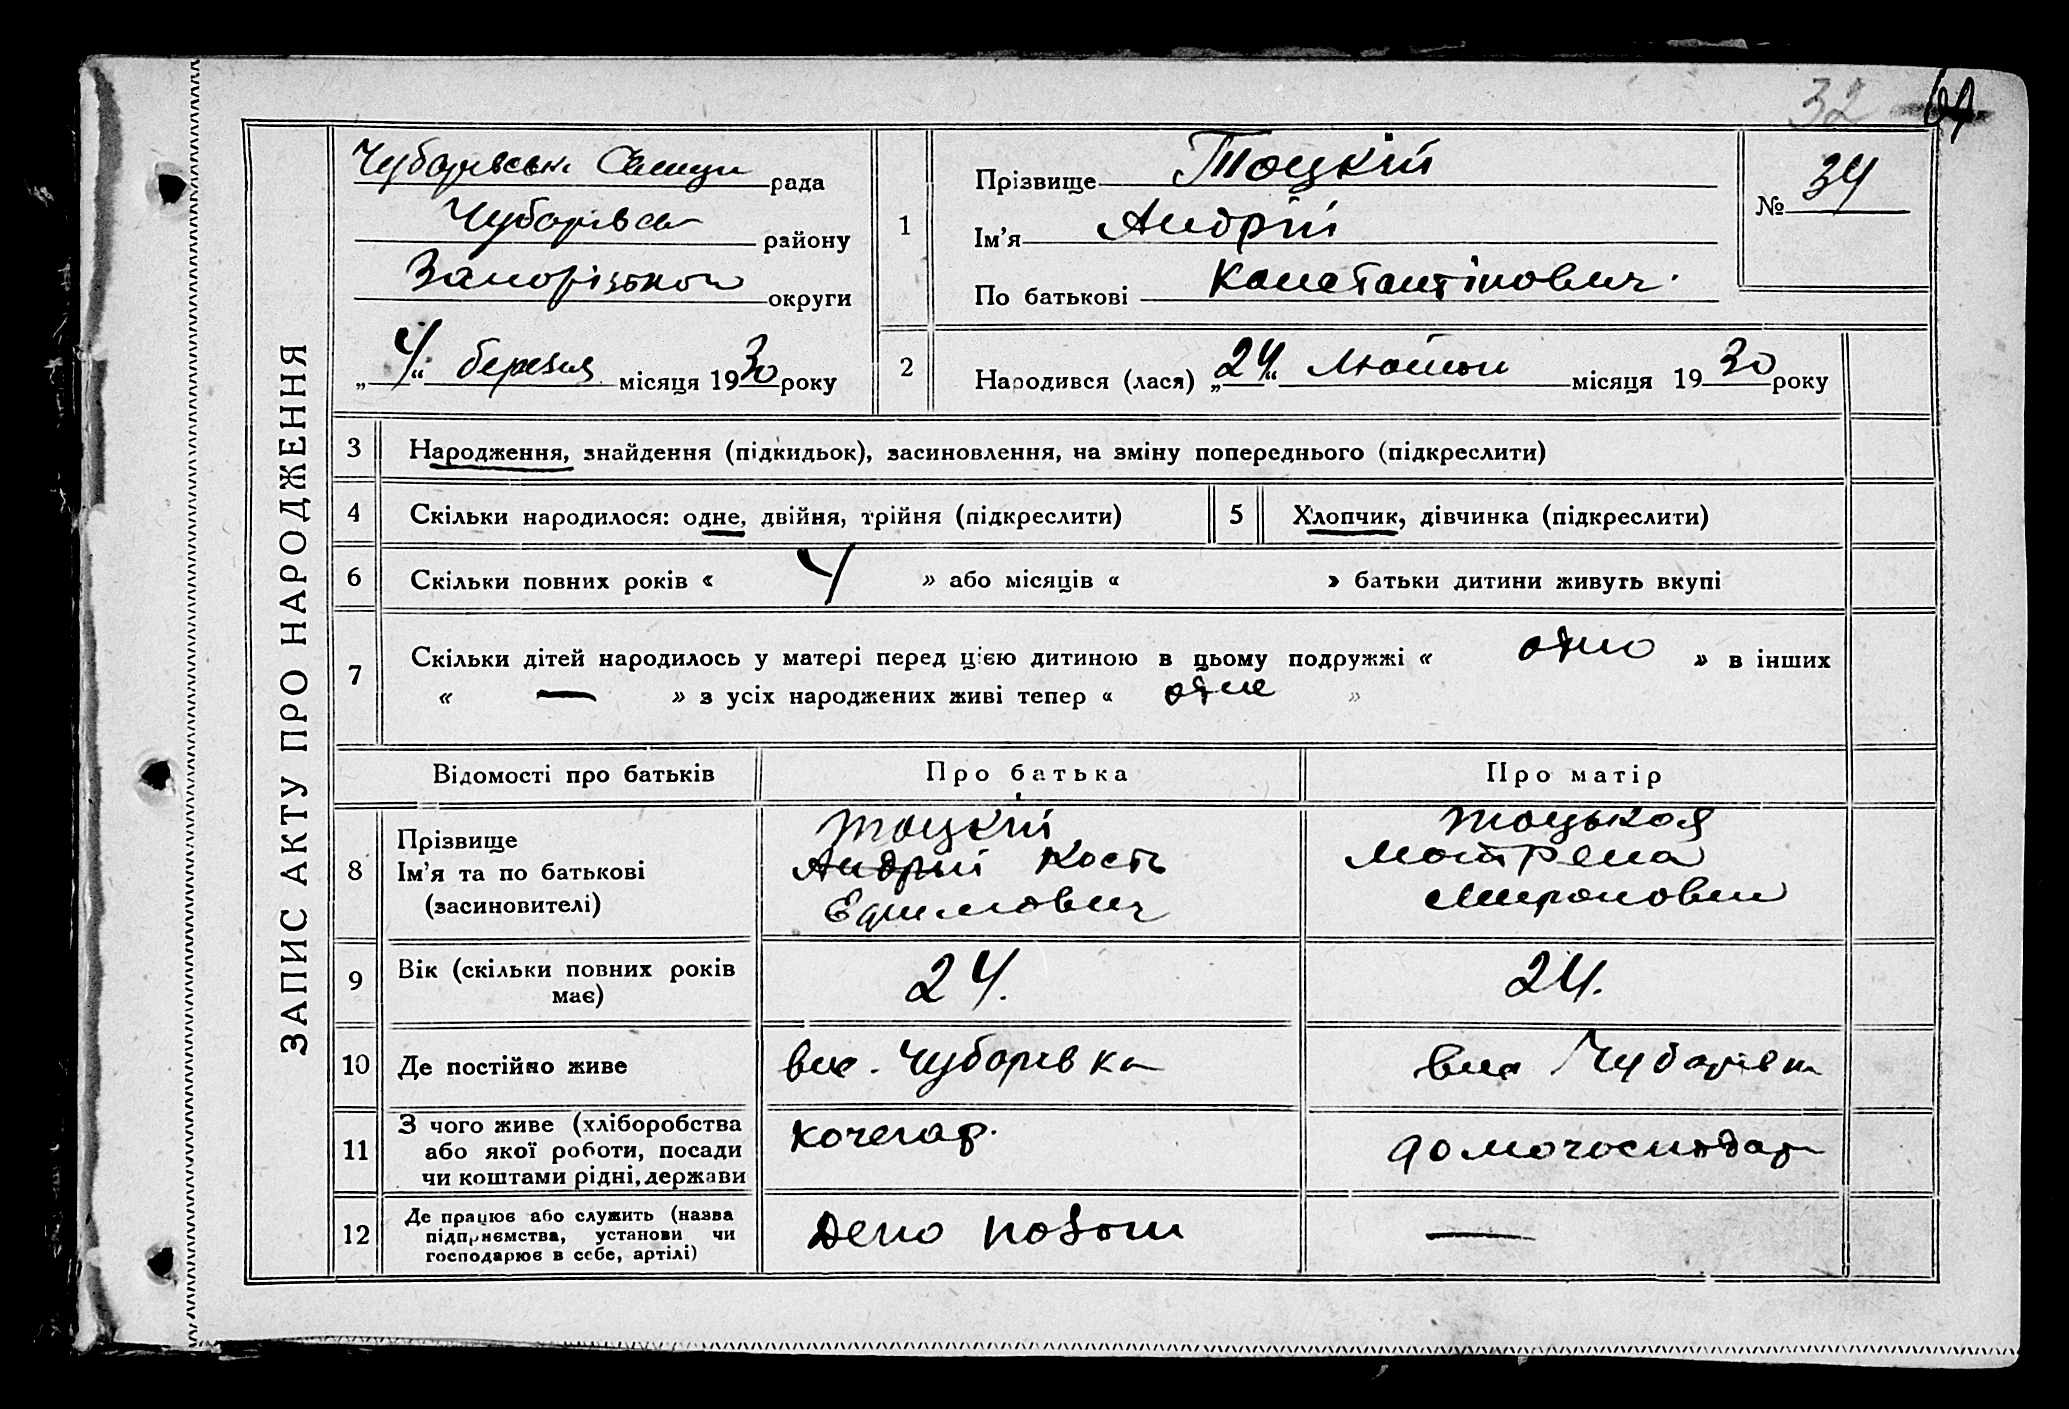 32
ЗАПИС АКТУ ПРО НАРОДЖЕННЯ
Чубарівськ Селищн рада
Чубарівськ району
Запорізької округи
„4“ березня місяця 1930 року
1
Прізвище Тоцкій
Ім’я Андрій
По батькові Констянтінович
№ 34
2
Народився (лася) „24“ Лютого місяця 1930 року
3 Народження, знайдення (підкидьок), засиновлення, на зміну попереднього (підкреслити)
4 Скільки народилося: одне, двійня, трійня (підкреслити)
5 Хлопчик, дівчинка (підкреслити)
6 Скільки повних років « 4 » або місяців « » батьки дитини живуть вкупі
7 Скільки дітей народилось у матері перед цією дитиною в цьому подружжі « одно » в інших
« — » з усіх народжених живі тепер « одне »
Відомості про батьків Про батька Про матір
8 Прізвище
Ім’я та по батькові
(засиновителі)
Тоцкій
Андрій Кость
Ефимович
Тоцькоя
Мотрена
Мироновн
9 Вік (скільки повних років
має)
24.
24.
10 Де постійно живе
вис. Чубарівка
вис Чубарівка
11 З чого живе (хліборобства
або якої роботи, посади
чи коштами рідні, держави
кочегар.
домогосподар
12 Де працює або служить (назва
підприємства, установи чи
господарює в себе, артілі)
Депо
—